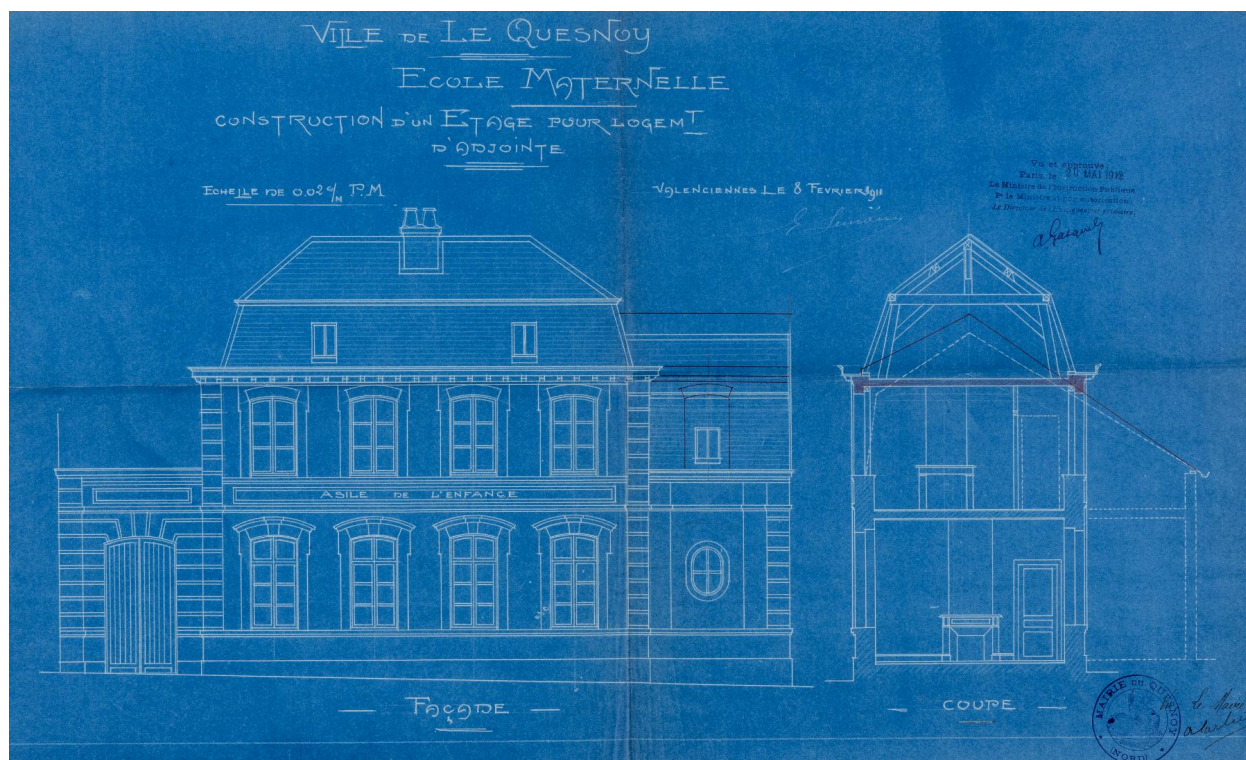 VILLE DE LE QUESNOY
ECOLE MATERNELLE
CONSTRUCTION D'UN ETAGE POUR LOGEMT
D'ADJOINTE
ECHELLE DE 0,02 c/M P.M
VALENCIENNES LE 8 FEVRIER 1911
Vu et approuvé
Paris, le 20 MAI 1912
Le Ministre de l'Instruction Publique
Pr le Ministre et par autorisation
Le Directeur de l'Enseignement primaire
ASILE DE L'ENFANCE
FAÇADE
COUPE
MAIRIE DU QUESNOY
(NORD)
Le Maire